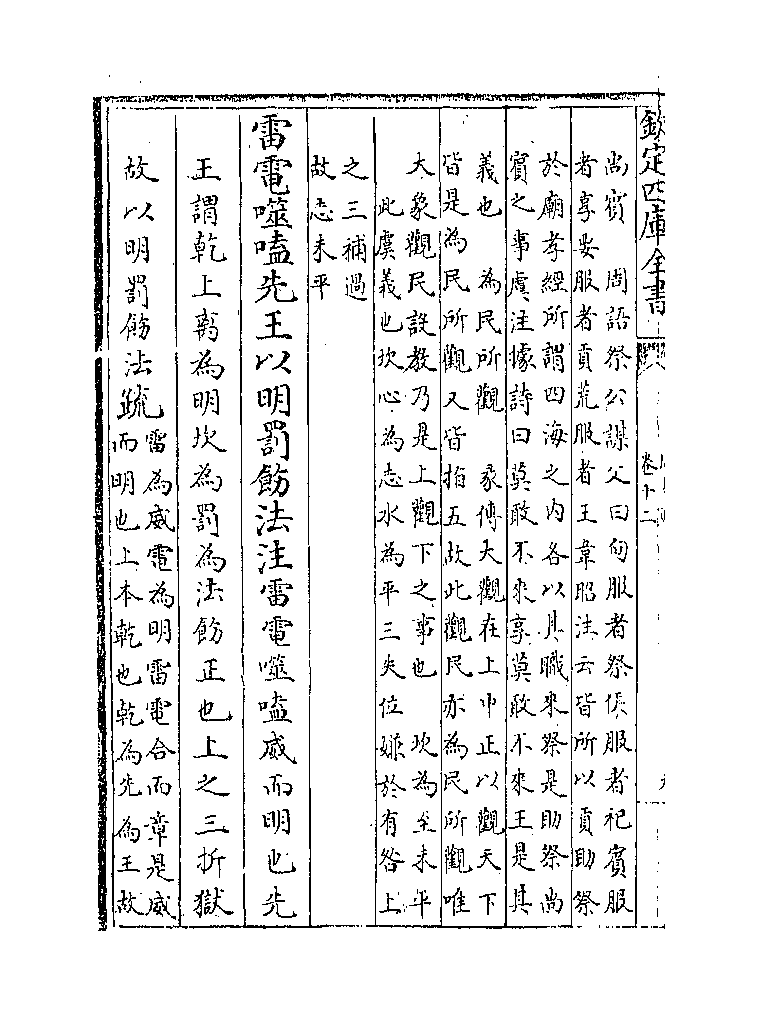 欽定四庫全書
卷十二
尚賓 周語祭公謀父曰甸服者祭侯服者祀賓服
者享要服者貢荒服者王韋昭注云皆所以貢助祭
於廟孝經所謂四海之內各以其職來祭是助祭尚
賓之事虞注據詩曰莫敢不來享莫敢不來王是其
義也 為民所觀 彖傳大觀在上中正以觀天下
皆是為民所觀又皆指五故此觀民亦為民所觀唯
大象觀民設教乃是上觀下之事也 坎為至未平
此虞義也坎心為志水為平三失位嫌於有咎上
之三補過
故志未平
雷電噬嗑先王以明罰飭法注雷電噬嗑威而明也先
王謂乾上离為明坎為罰為法飭正也上之三折獄
故以明罰飭法疏
雷為威電為明雷電合而章是威
而明也上本乾也乾為先為王故